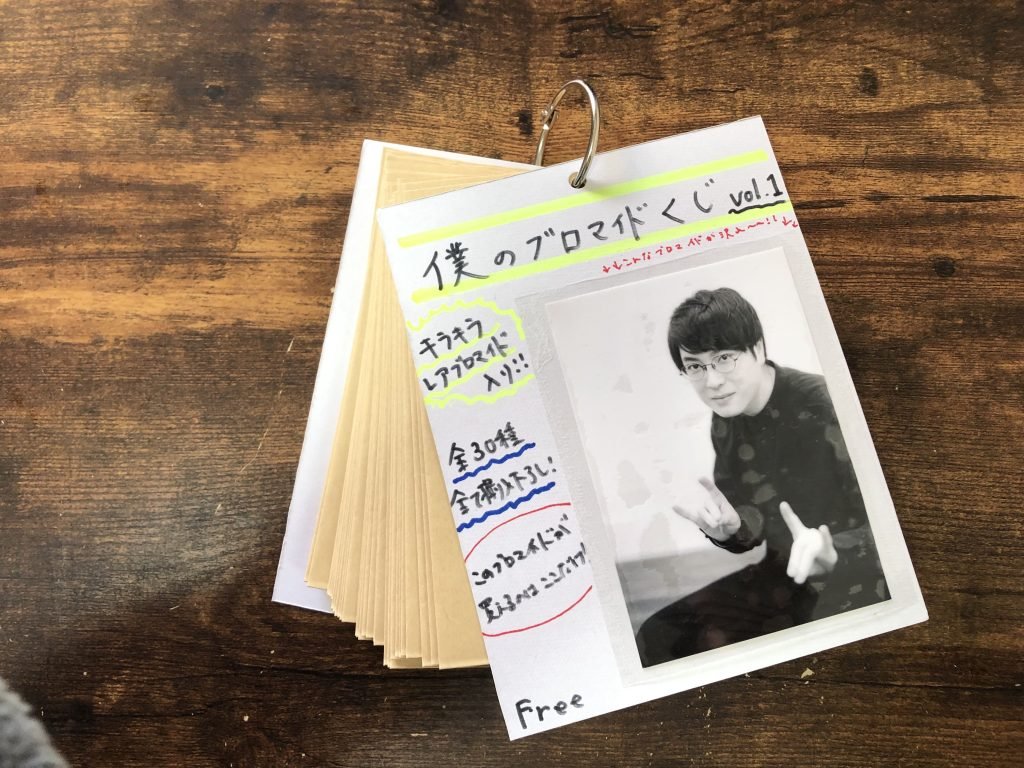 僕のブロマイドくじ vol.1
↓↓こんなブロマイドが沢山〜!!↓↓
キラキラ
レアブロマイド
入り!!
全30種
全て撮り下ろし!
このブロマイドが
買えるのはここだけ!
Free